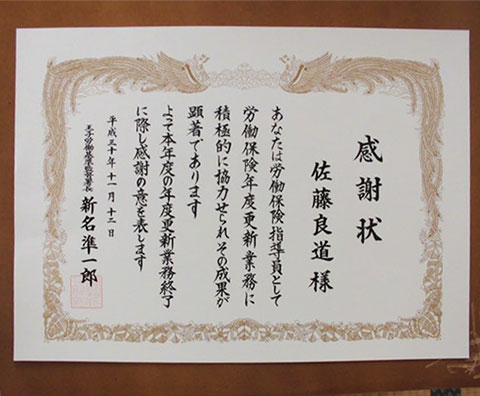 感謝状
佐藤良道様
あなたは労働保険指導員として
労働保険年度更新業務に
積極的に協力せられその成果が
顕著であります
よって本年度の年度更新業務終了
に際し感謝の意を表します
平成三十年十一月十二日
王子労働基準監督署長 新名準一郎